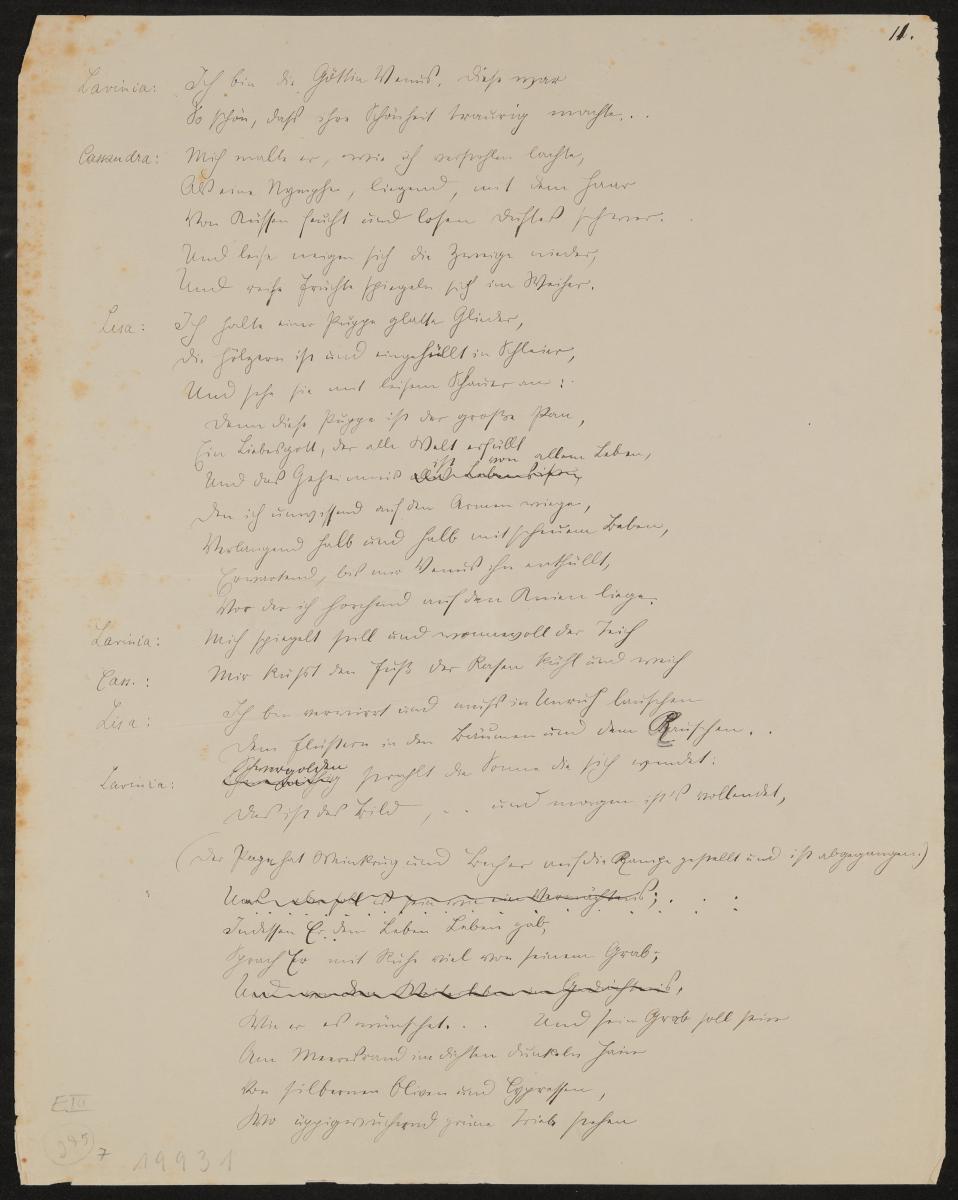 11.
Lavinia: Ich bin die Göttin Venus. Diese war
So schön, dass ihre Schönheit traurig machte...
Cassandra: Mich malte er, wie ich verstohlen lachte,
Als eine Nymphe, liegend, mit dem Haar
Von Küssen feucht und losen Duftes schwer.
Und leise neigen sich die Zweige nieder,
Und reife Früchte spiegeln sich im Weiher.
Lisa: Ich halte einer Puppe glatte Glieder,
Die hölzern ist und eingehüllt in Schleier,
Und sehe sie mit leisem Schauer an:
Denn diese Puppe ist der große Pan,
Ein Liebesgott, der alle Welt erfüllt
Und das Geheimnis ist von allem Leben,
Den ich unwissend auf den Armen wiege,
Verlangend halb und halb mit scheuem Beben,
Erwartend, bis mir Venus ihn enthüllt,
Vor der ich horchend auf den Knien liege.
Lavinia: Mich spiegelt still und wonnevoll der Teich
Cass.: Mir küsst den Fuß der Rasen kühl und weich
Lisa: Ich bin verwirrt und muss in Unruh lauschen
Dem Flüstern in den Bäumen und dem Rauschen..
Lavinia: Schwergolden strahlt die Sonne die sich wendet:
Das ist das Bild, .. und morgen ist's vollendet,
(Der Page hat Weinkrug und Becher auf die Rampe gestellt und ist abgegangen.)
Indessen Er dem Leben Leben gab,
Sprach Er mit Ruhe viel von seinem Grab;
Wie er es wünschet... Und sein Grab soll sein
Am Meeresrand im dichten dunkeln Hain
Von silbernen Oliven und Cypressen,
Wo üppigwuchernd grüne Triebe
E III
7
19931